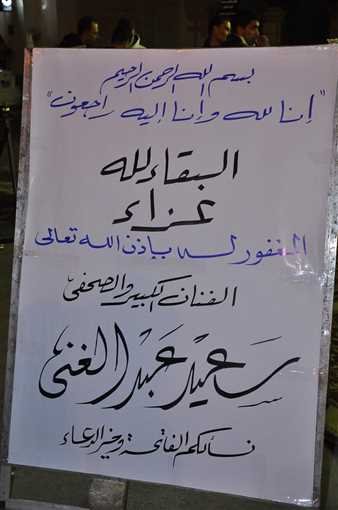 بسم الله الرحمن الرحيم
"إنا لله وإنا إليه راجعون"
البقاء لله
عزاء
المغفور له بإذن الله تعالى
الفنان الكبير والصحفى
سعيد عبد الغنى
نسألكم الفاتحة وخير الدعاء